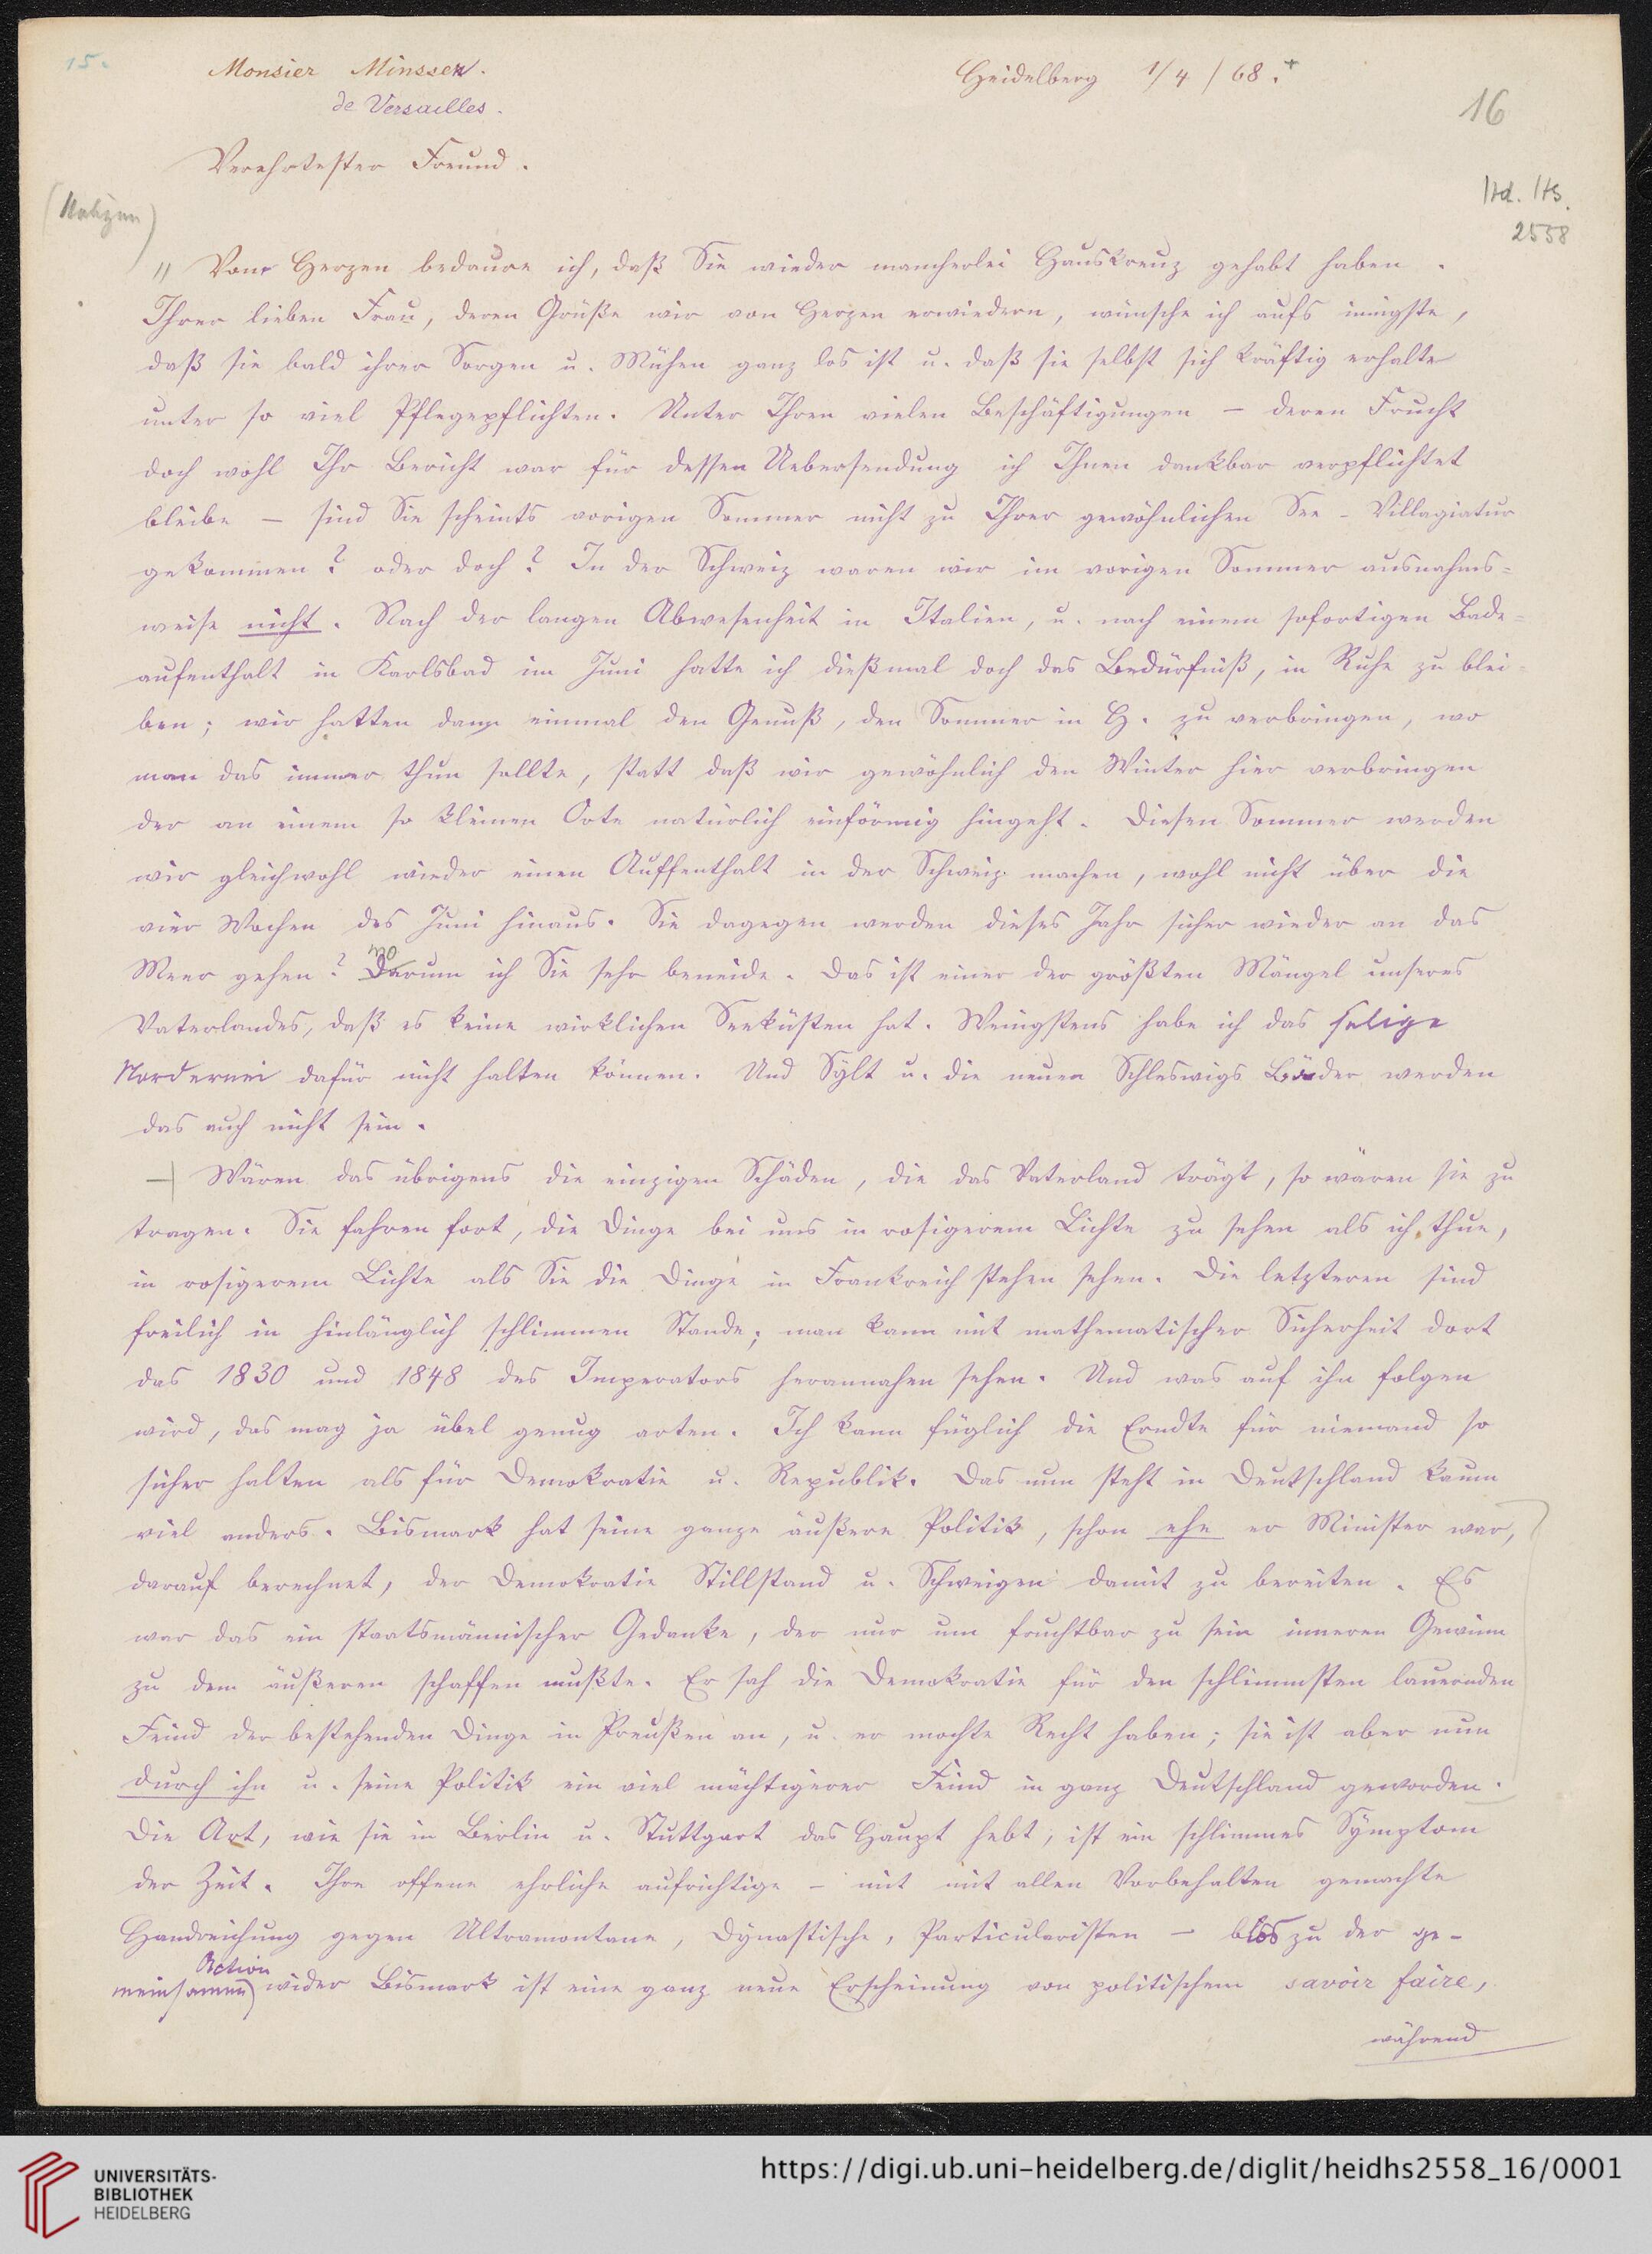 15.
Monsier Minssen.
de Versailles.
Heidelberg 1/4 / 68.+
16
Verehrtester Freund.
Hd. Hs.
2558
" Von Herzen bedaure ich, daß Sie wieder mancherlei Hauskreuz gehabt haben.
Ihrer lieben Frau, deren Grüße wir von Herzen erwiedern, wünsche ich aufs innigste,
daß sie bald ihrer Sorgen u. Mühen ganz los ist u. daß sie selbst sich kräftig erhalte
unter so viel Pflegepflichten. Unter Ihren vielen Beschäftigungen – deren Frucht
doch wohl Ihr Bericht war für dessen Uebersendung ich Ihnen dankbar verpflichtet
bleibe – sind Sie scheints vorigen Sommer nicht zu Ihrer gewöhnlichen See-Villagiatur
gekommen? oder doch? In der Schweiz waren wir im vorigen Sommer ausnahms-
weise nicht. Nach der langen Abwesenheit in Italien, u. nach einem sofortigen Bade-
aufenthalt in Karlsbad im Juni hatte ich dießmal doch das Bedürfniß, in Ruhe zu blei-
ben; wir hatten dann einmal den Genuß, den Sommer in H. zu verbringen, wo
man das immer thun sollte, statt daß wir gewöhnlich den Winter hier verbringen
der an einem so kleinen Orte natürlich einförmig hingeht. Diesen Sommer werden
wir gleichwohl wieder einen Auffenthalt in der Schweiz machen, wohl nicht über die
vier Wochen des Juni hinaus. Sie dagegen werden dieses Jahr sicher wieder an das
Meer gehen? Worum ich Sie sehr beneide. Das ist einer der größten Mängel unseres
Vaterlandes, daß es keine wirklichen Seeküsten hat. Wenigstens habe ich das selige
Nordernei dafür nicht halten können. Und Sylt u. die neuen Schleswigs Bäder werden
das auch nicht sein.
Wären das übrigens die einzigen Schäden, die das Vaterland trägt, so wären sie zu
tragen. Sie fahren fort, die Dinge bei uns in rosigerem Lichte zu sehen als ich thue,
in rosigerem Lichte als Sie die Dinge in Frankreich stehen sehen. Die letzteren sind
freilich in hinlänglich schlimmen Stande; man kann mit mathematischer Sicherheit dort
das 1830 und 1848 des Imperators herannahen sehen. Und was auf ihn folgen
wird, das mag ja übel genug arten. Ich kann füglich die Erndte für niemand so
sicher halten als für Demokratie u. Republik. Das nun steht in Deutschland kaum
viel anders. Bismark hat seine ganze äußere Politik, schon ehe er Minister war,
darauf berechnet, der Demokratie Stillstand u. Schweigen damit zu bereiten. Es
war das ein staatsmännischer Gedanke, der nur um fruchtbar zu sein inneren Gewinn
zu dem äußeren schaffen mußte. Er sah die Demokratie für den schlimmsten lauernden
Feind der bestehenden Dinge in Preußen an, u. er mochte Recht haben; sie ist aber nun
durch ihn u. seine Politik ein viel mächtigerer Feind in ganz Deutschland geworden.
Die Art, wie sie in Berlin u. Stuttgart das Haupt hebt, ist ein schlimmes Symptom
der Zeit. Ihre offene ehrliche aufrichtige – mit mit allen Vorbehalten gemachte
Handreichung gegen Ultramontane, Dynastische, Particularisten – blos zu der ge-
meinsamen Action wider Bismark ist eine ganz neue Erscheinung von politischem savoir faire,
während
UNIVERSITÄTS-
BIBLIOTHEK
HEIDELBERG
https://digi.ub.uni-heidelberg.de/diglit/heidhs2558_16/0001